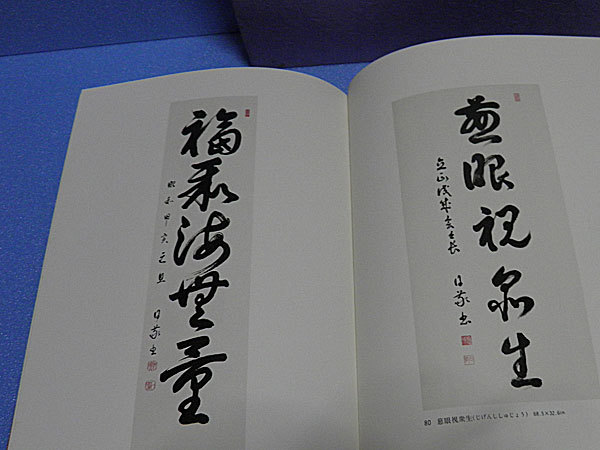 慈眼視衆生
立正佼成会会長
日敬書
80 慈眼視衆生(じげんししゅじょう) 68.5×32.6cm
福聚海無量
昭和甲寅元旦
日敬書